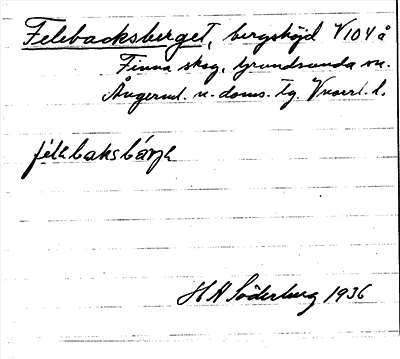 Felebacksberget, bergshöjd V104 å
Finna skog, Grundsunda sn.
Ångerml. n. doms. tg. Vnorrl. l.
H A Söderburg 1936